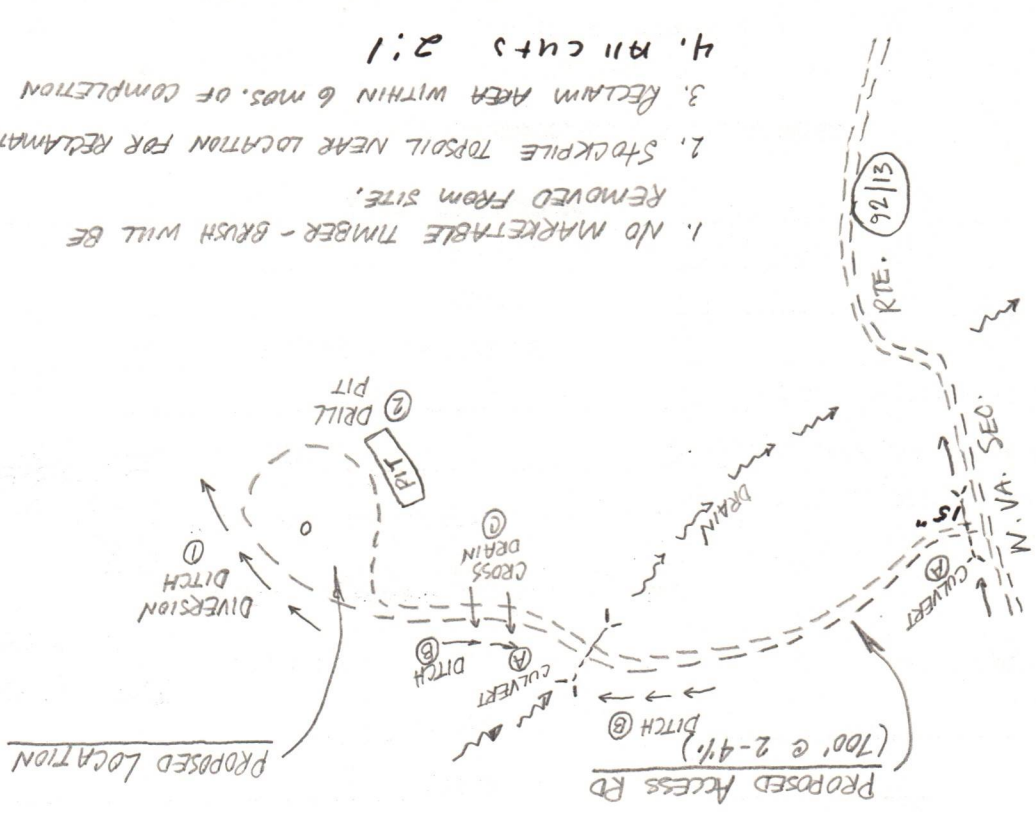 PROPOSED ACCESS RD
(700' @ 2-4%)
PROPOSED LOCATION
DITCH B
CULVERT
A
DITCH B
DIVERSION
DITCH
1
CULVERT
A
15"
CROSS
DRAIN
C
DRAIN
PIT
2 DRILL
PIT
W. VA. SEC.
RTE. 92/13
1. NO MARKETABLE TIMBER - BRUSH WILL BE
REMOVED FROM SITE.
2. STOCKPILE TOPSOIL NEAR LOCATION FOR RECLAMAT
3. RECLAIM AREA WITHIN 6 MOS. OF COMPLETION
4. All cuts 2:1